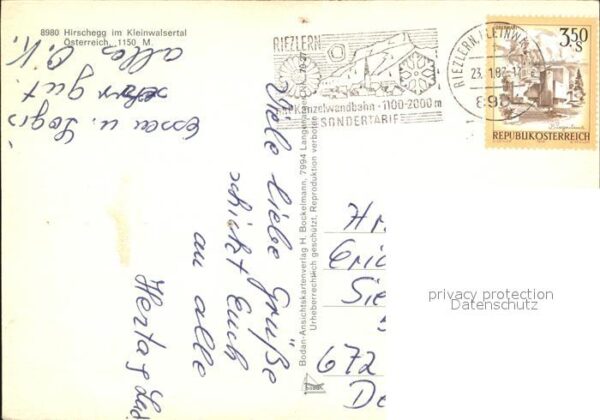 8980 Hirschegg im Kleinwalsertal
Österreich, 1150 M.
RIEZLERN
Kanzelwandbahn · 1100-2000m
SONDERTARIF
RIEZLERN, KLEINW
23. 1.
3.50
S
REPUBLIK ÖSTERREICH
Viele liebe Grüße
schickt Euch
an alle
Herta
Essen u. Logis
sehr gut
alles O.K.
Bodan-Ansichtskartenverlag H. Bockelmann, 7994 Langenargen
Urheberrechtlich geschützt. Reproduktion verboten
H
Eric
Sie
672
De
privacy protection
Datenschutz